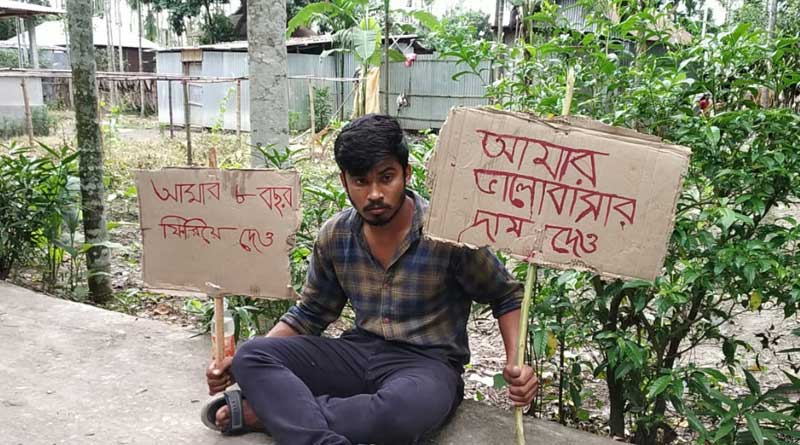 আমার ৮ বছর
ফিরিয়ে দেও
আমার
ভালোবাসার
দাম দেও